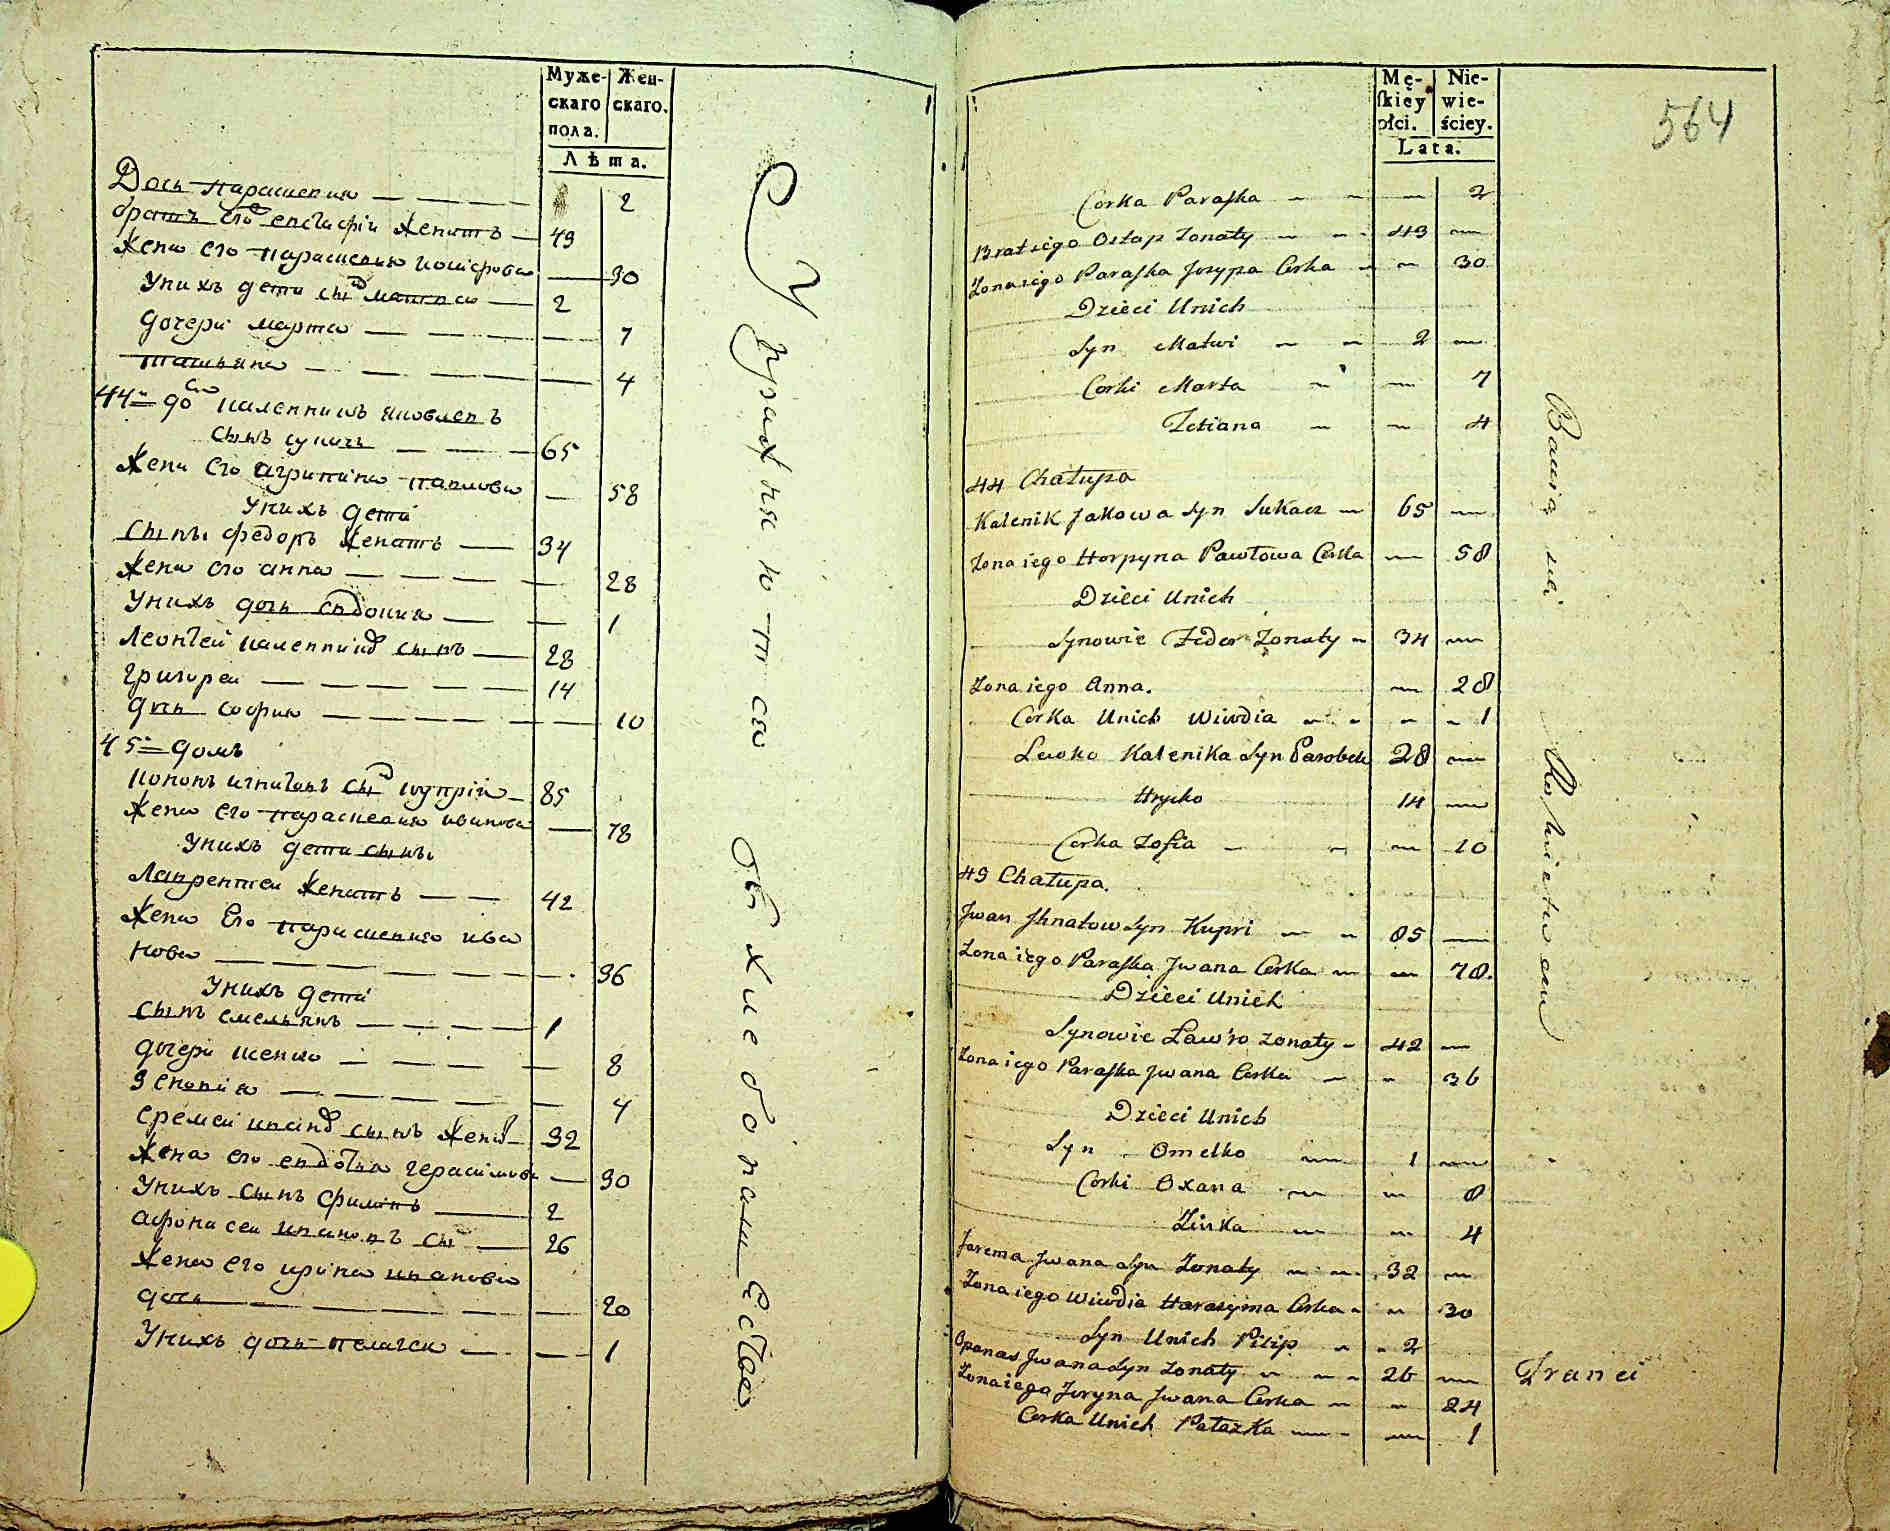 Муже- Жен-
скаго скаго.
пола.
Лѣта.
Дочь парасковия 2
братъ его евстафiи женатъ 49
жена его парасковия иосифова 30
Унихъ дети сынъ матвеи 2
дочери марта 7
татьяна 4
44й домъ каленникъ яковлевъ
сынъ сукачъ 65
жена его агрипина павлова 58
Унихъ дети
сынъ федоръ женатъ 34
жена его анна 28
Унихъ дочь евдокия 1
Леонтей каленниковъ сынъ 28
григореи 14
дочь софия 10
45й домъ
игнатовъ сынъ куприй 85
жена его парасковия иванова 78
Унихъ дети сынъ
Лаврентеи женатъ 42
жена его парасковия ива
нова 36
Унихъ дети
сынъ емельянъ 1
дочери ксения 8
зеновия 4
еремеи ивановъ сынъ женатъ 32
жена его евдокия герасимова 30
Унихъ сынъ филипъ 2
афонасеи ивановъ сынъ 26
жена его ирина иванова
дочь 20
Унихъ дочь пелагея 1
Упражняются
хлебопашеством
564
Mę- Nie-
skiéy wie-
płci. ściey.
Lata.
Corka Paraska 2
Brat iego Ostap Zonaty 49
Zona iego Paraska Jozypa Corka 30
Dzieci Unich
Syn Matwi 2
Corki Marta 7
Tetiana 4
44 Chatupa
Kalenik Jakowa Syn Sukacz 65
Zona iego Horpyna Pawłowa Corka 58
Dzieci Unich
Synowie Fedor Zonaty 34
Zona iego Anna. 28
Corka Unich Wiwdia 1
Lewko Kalenika Syn Parobek 28
Hrycko 14
Corka Zofia 10
45 Chatupa.
Jwan Jhnatow Syn Kupri 85
Zona iego Paraska Jwana Corka 78.
Dzieci Unich
Synowie Ławro zonaty 42
Zona iego Paraska Jwana Corka 36
Dzieci Unich
Syn Omelko 1
Corki Oxana 8
Zinka 4
Jarema Jwana Syn Zonaty 32
Zona iego Wiwdia Harasyma Corka 30
Syn Unich Pilip 2
Opanas Jwana Syn zonaty 26
Zona iego Jwryna Jwana Corka 24
Corka Unich Patazka 1
Bawią się Rolnictwem